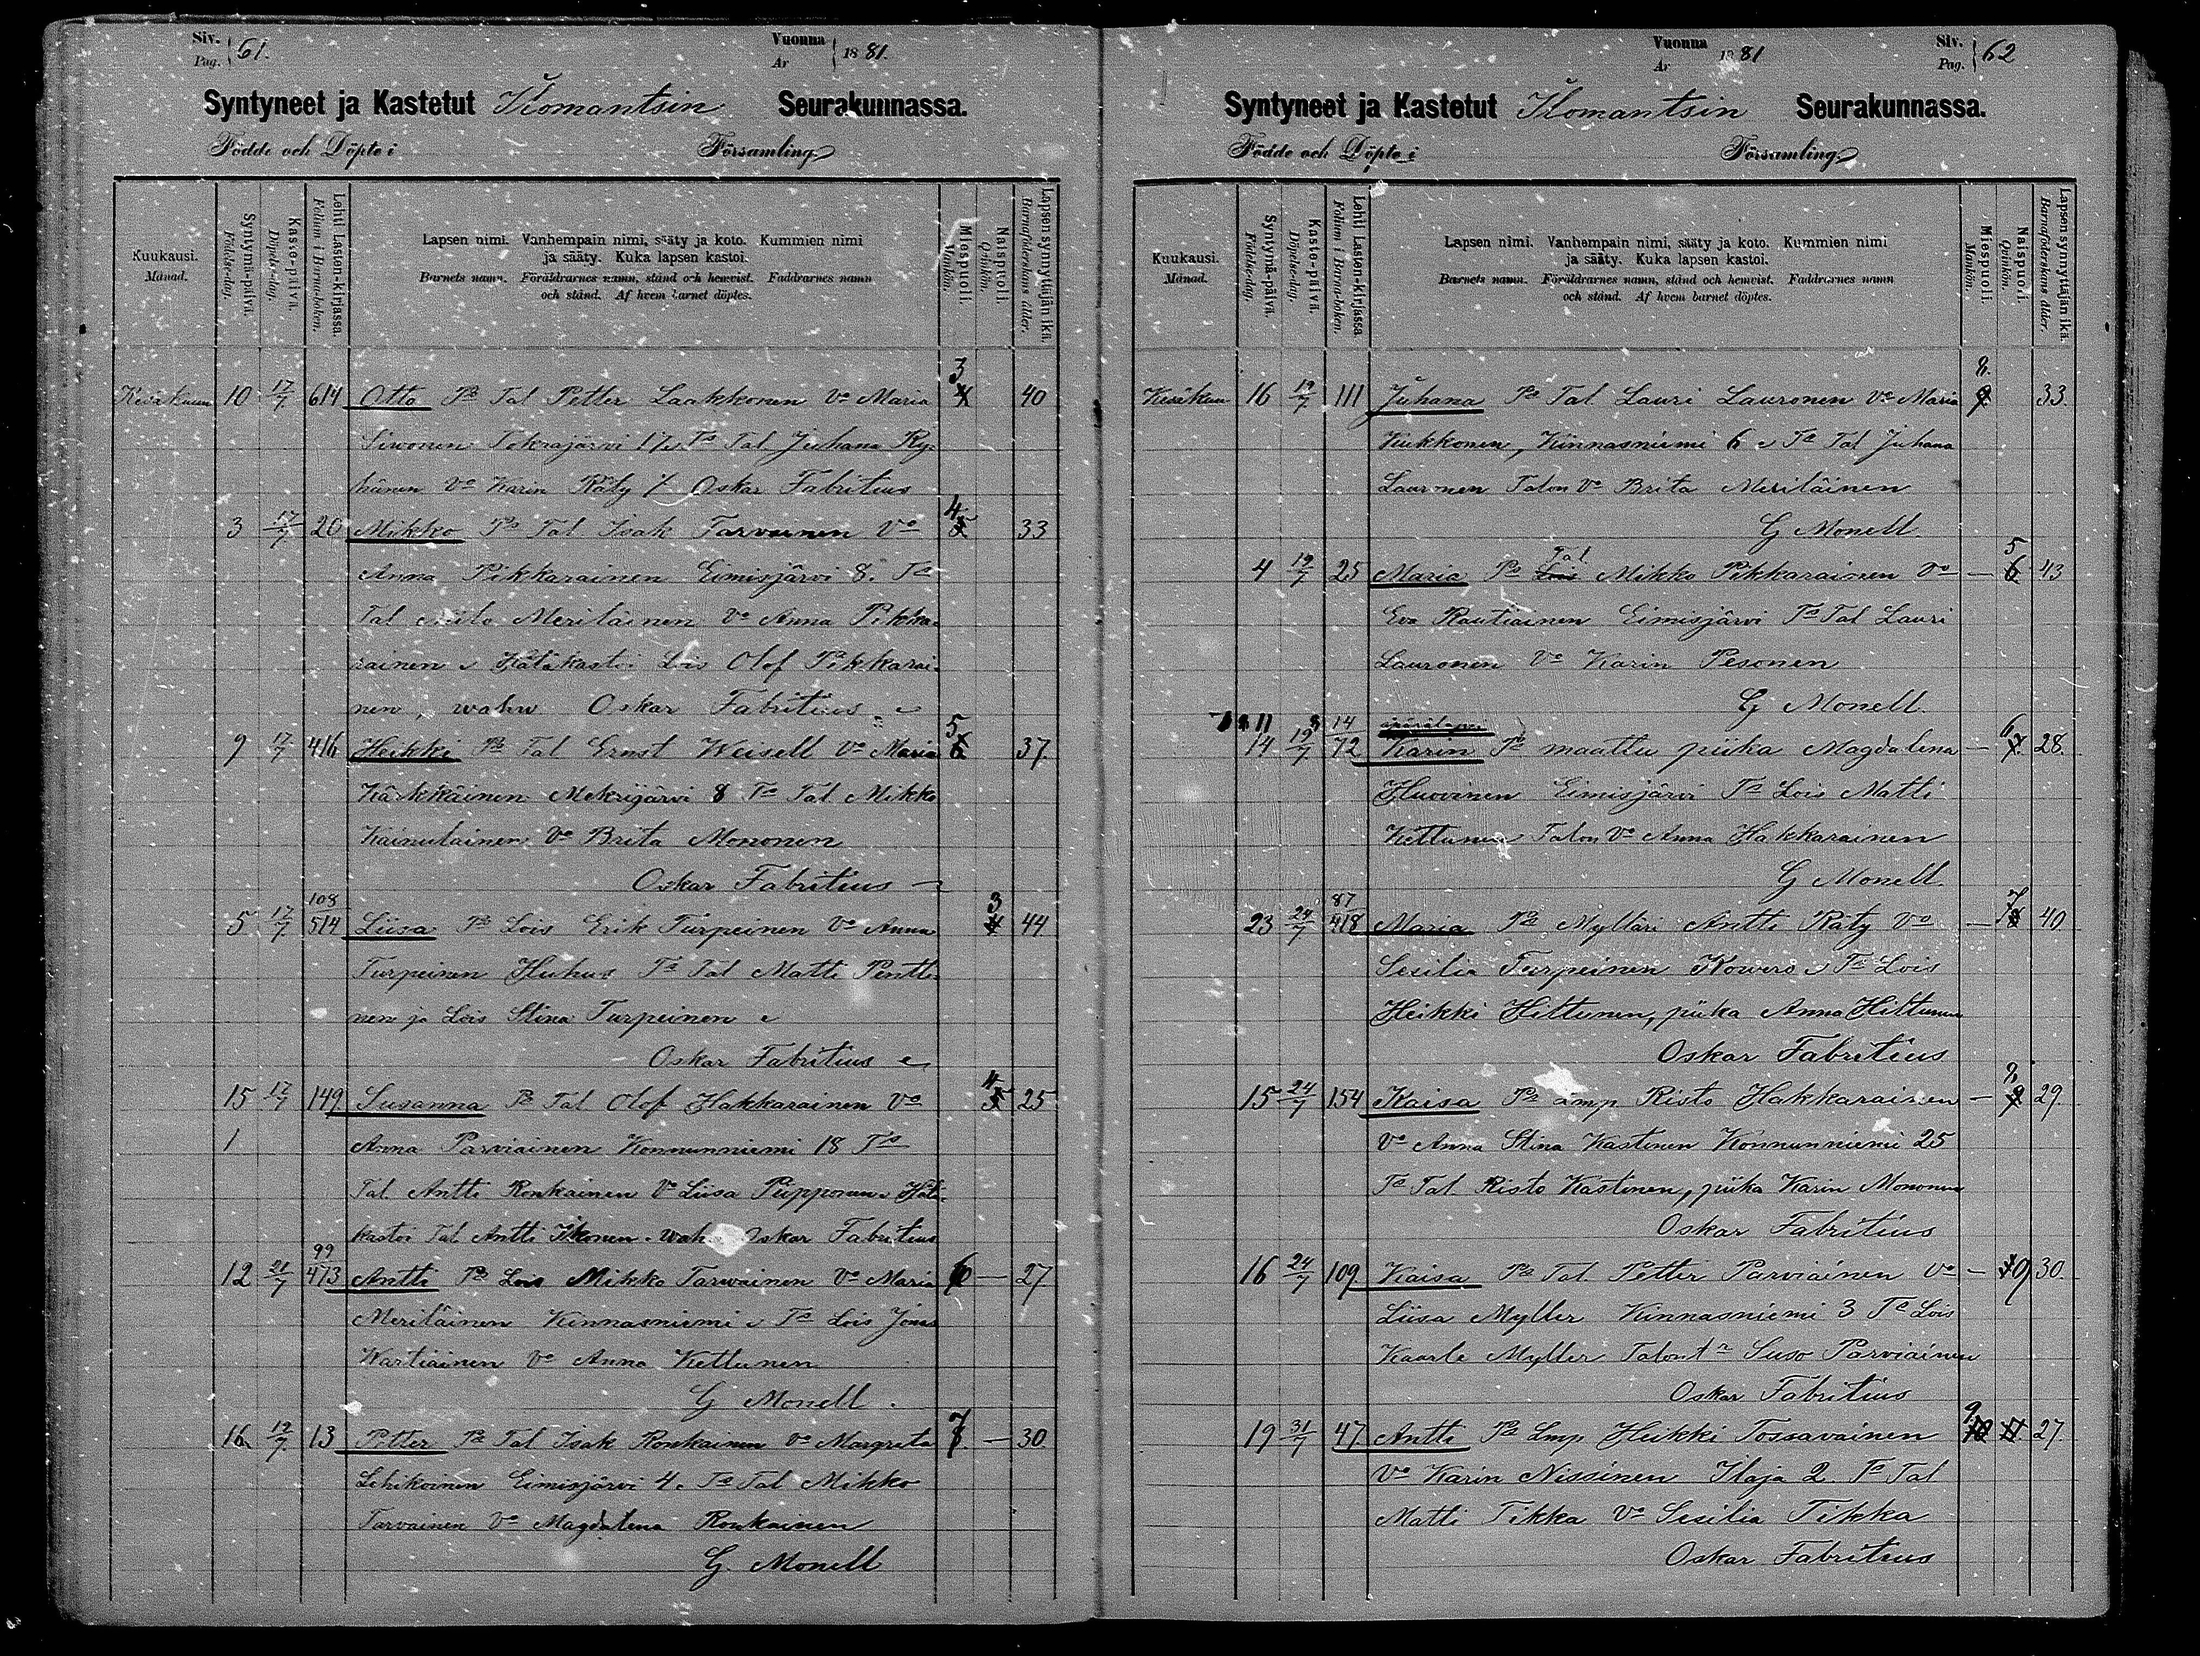 Siv. Pag. 61.
Vuonna År 1881.
Syntyneet ja Kastetut Ilomantsin Seurakunnassa.
Födde och Döpte i Församling
Kuukausi. Månad.
Syntymä-päivä. Födelse-dag.
Kaste-päivä. Döpelse-dag.
Lehti Lasten-kirjassa. Folium i Barna-boken.
Lapsen nimi. Vanhempain nimi, sääty ja koto. Kummien nimi
ja sääty. Kuka lapsen kastoi.
Barnets namn. Föräldrarnes namn, stånd och hemvist. Faddrarnes namn
och stånd. Af hvem barnet döptes.
Miespuoli. Mankön.
Naispuoli. Qvinkön.
Lapsen synnyttäjän ikä. Barnaföderskans ålder.
3
Kesäkuun 10 17/7 614 Otto Ps Tal Petter Laakkonen Vo Maria 4 40
Siwonen Tokrajärvi 17 Ts Tal Juhana Ry-
hänen Vo Karin Räty 7 Oskar Fabritius
4
3 17/7 20 Mikko Ps Tal Isak Tarvainen Vo 5 33
Anna Pikkarainen Eimisjärvi 8. Ts
Tal Meriläinen Vo Anna Pikka-
rainen Hätäkastoi Lois Olof Pikkarai-
nen, wahw Oskar Fabritius
5
9 17/7 416 Heikki Ps Tal Ernst Weisell Vo Maria 6 37.
Kärkkäinen Mekrijärvi 8 Ts Tal Mikko
Kainulainen Vo Brita Mononen
Oskar Fabritius
108 3
5 17/7 514 Liisa Ps Lois Erik Turpeinen Vo Anna 4 44
Turpeinen Huhus Ts Tal Matti Pentti-
nen ja Lois Stina Turpeinen
Oskar Fabritius
4
15 17/7 149 Susanna Ps Tal Olof Hakkarainen Vo 5 25
1 Anna Parviainen Konnunniemi 18 Ts
Tal Antti Ronkainen Vo Liisa Piipponen Hät.
kastoi Tal Antti Ikonen. wah. Oskar Fabritius
99
12 21/7 473 Antti Ps Lois Mikko Tarwainen Vo Maria 6 — 27.
Meriläinen Kinnasniemi Ts Lois Jonas
Wartiainen Vo Anna Kettunen
G Monell.
7
16 19/7 13 Petter Ps Tal Isak Ronkainen Vo Margreta 8 — 30
Lehikoinen Eimisjärvi 4. Ts Tal Mikko
Tarvainen Vo Magdalena Ronkainen
G. Monell
Vuonna År 1881
Siv. Pag. 62
Syntyneet ja Kastetut Ilomantsin Seurakunnassa.
Födde och Döpte i Församling
Kuukausi. Månad.
Syntymä-päivä. Födelse-dag.
Kaste-päivä. Döpelse-dag.
Lehti Lasten-kirjassa. Folium i Barna-boken.
Lapsen nimi. Vanhempain nimi, sääty ja koto. Kummien nimi
ja sääty. Kuka lapsen kastoi.
Barnets namn. Föräldrarnes namn, stånd och hemvist. Faddrarnes namn
och stånd. Af hvem barnet döptes.
Miespuoli. Mankön.
Naispuoli. Qvinkön.
Lapsen synnyttäjän ikä. Barnaföderskans ålder.
8.
Kesäkuu 16 19/7 111 Juhana Ps Tal Lauri Lauronen Vo Maria 9 33.
Kukkonen, Kinnasniemi 6 Ts Tal Juhana
Lauronen Talon Vo Brita Meriläinen
G Monell.
Tal 5
4 19/7 25 Maria Ps Lois Mikko Pikkarainen Vo — 6 43
Eva Rautiainen Eimisjärvi Ts Tal Lauri
Lauronen Vo Karin Pesonen
G Monell.
11 14 äpärälapsi 6
14 19/7 72 Karin Ps maattu piika Magdalena — 7. 28.
Huovinen Eimisjärvi Ts Lois Matti
Kettunen Talon Vo Anna Hakkarainen
G Monell.
87
23 24/7 418 Maria Ps Mylläri Antti Räty Vo — 7 8 40
Sesilia Turpeinen Kowero Ts Lois
Heikki Hiltunen, piika Anna Hiltunen
Oskar Fabritius
8.
15 24/7 154 Kaisa Ps Lmp Risto Hakkarainen — 9 29.
Vo Anna Stina Kastinen Konnunniemi 25
Ts Tal Risto Kastinen, piika Karin Mononen
Oskar Fabritius
16 24/7 109 Kaisa Ps Tal. Petter Parviainen Vo — 10 9 30.
Liisa Myller Kinnasniemi 3 Ts Lois
Kaarle Myller Talont. Suso Parviainen
Oskar Fabritius
9
19 31/7 47 Antti Ps Lmp Heikki Tossavainen 10 11. 27.
Vo Karin Nissinen Ilaja 2. Ts Tal
Matti Tikka Vo Sesilia Tikka
Oskar Fabritius